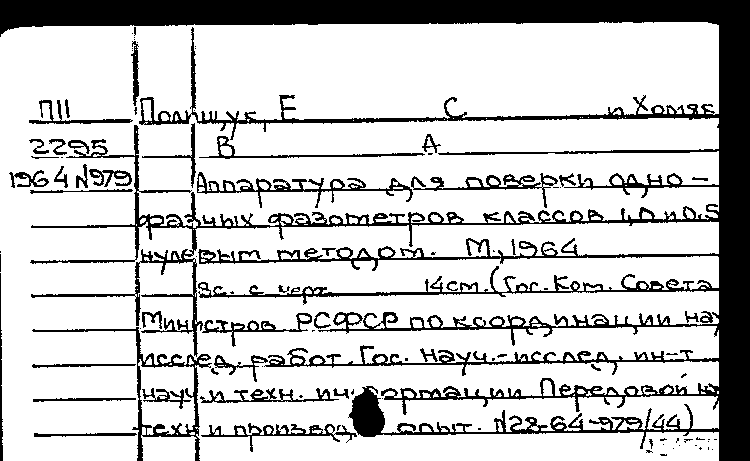 П11 Полищук, Е С и Хомяк,
2295 В А
1964 №979 Аппаратура для поверки одно-
фазных фазометров классов 1,0 и 0.5
нулевым методом. М, 1964
8с. с черт. 14см. (Гос. Ком. Совета
Министров РСФСР по координации нау
исслед. работ. Гос. науч.-исслед. ин-т
науч. и техн. информации Передовой н
техн и производ. опыт. №28-64-979/44)